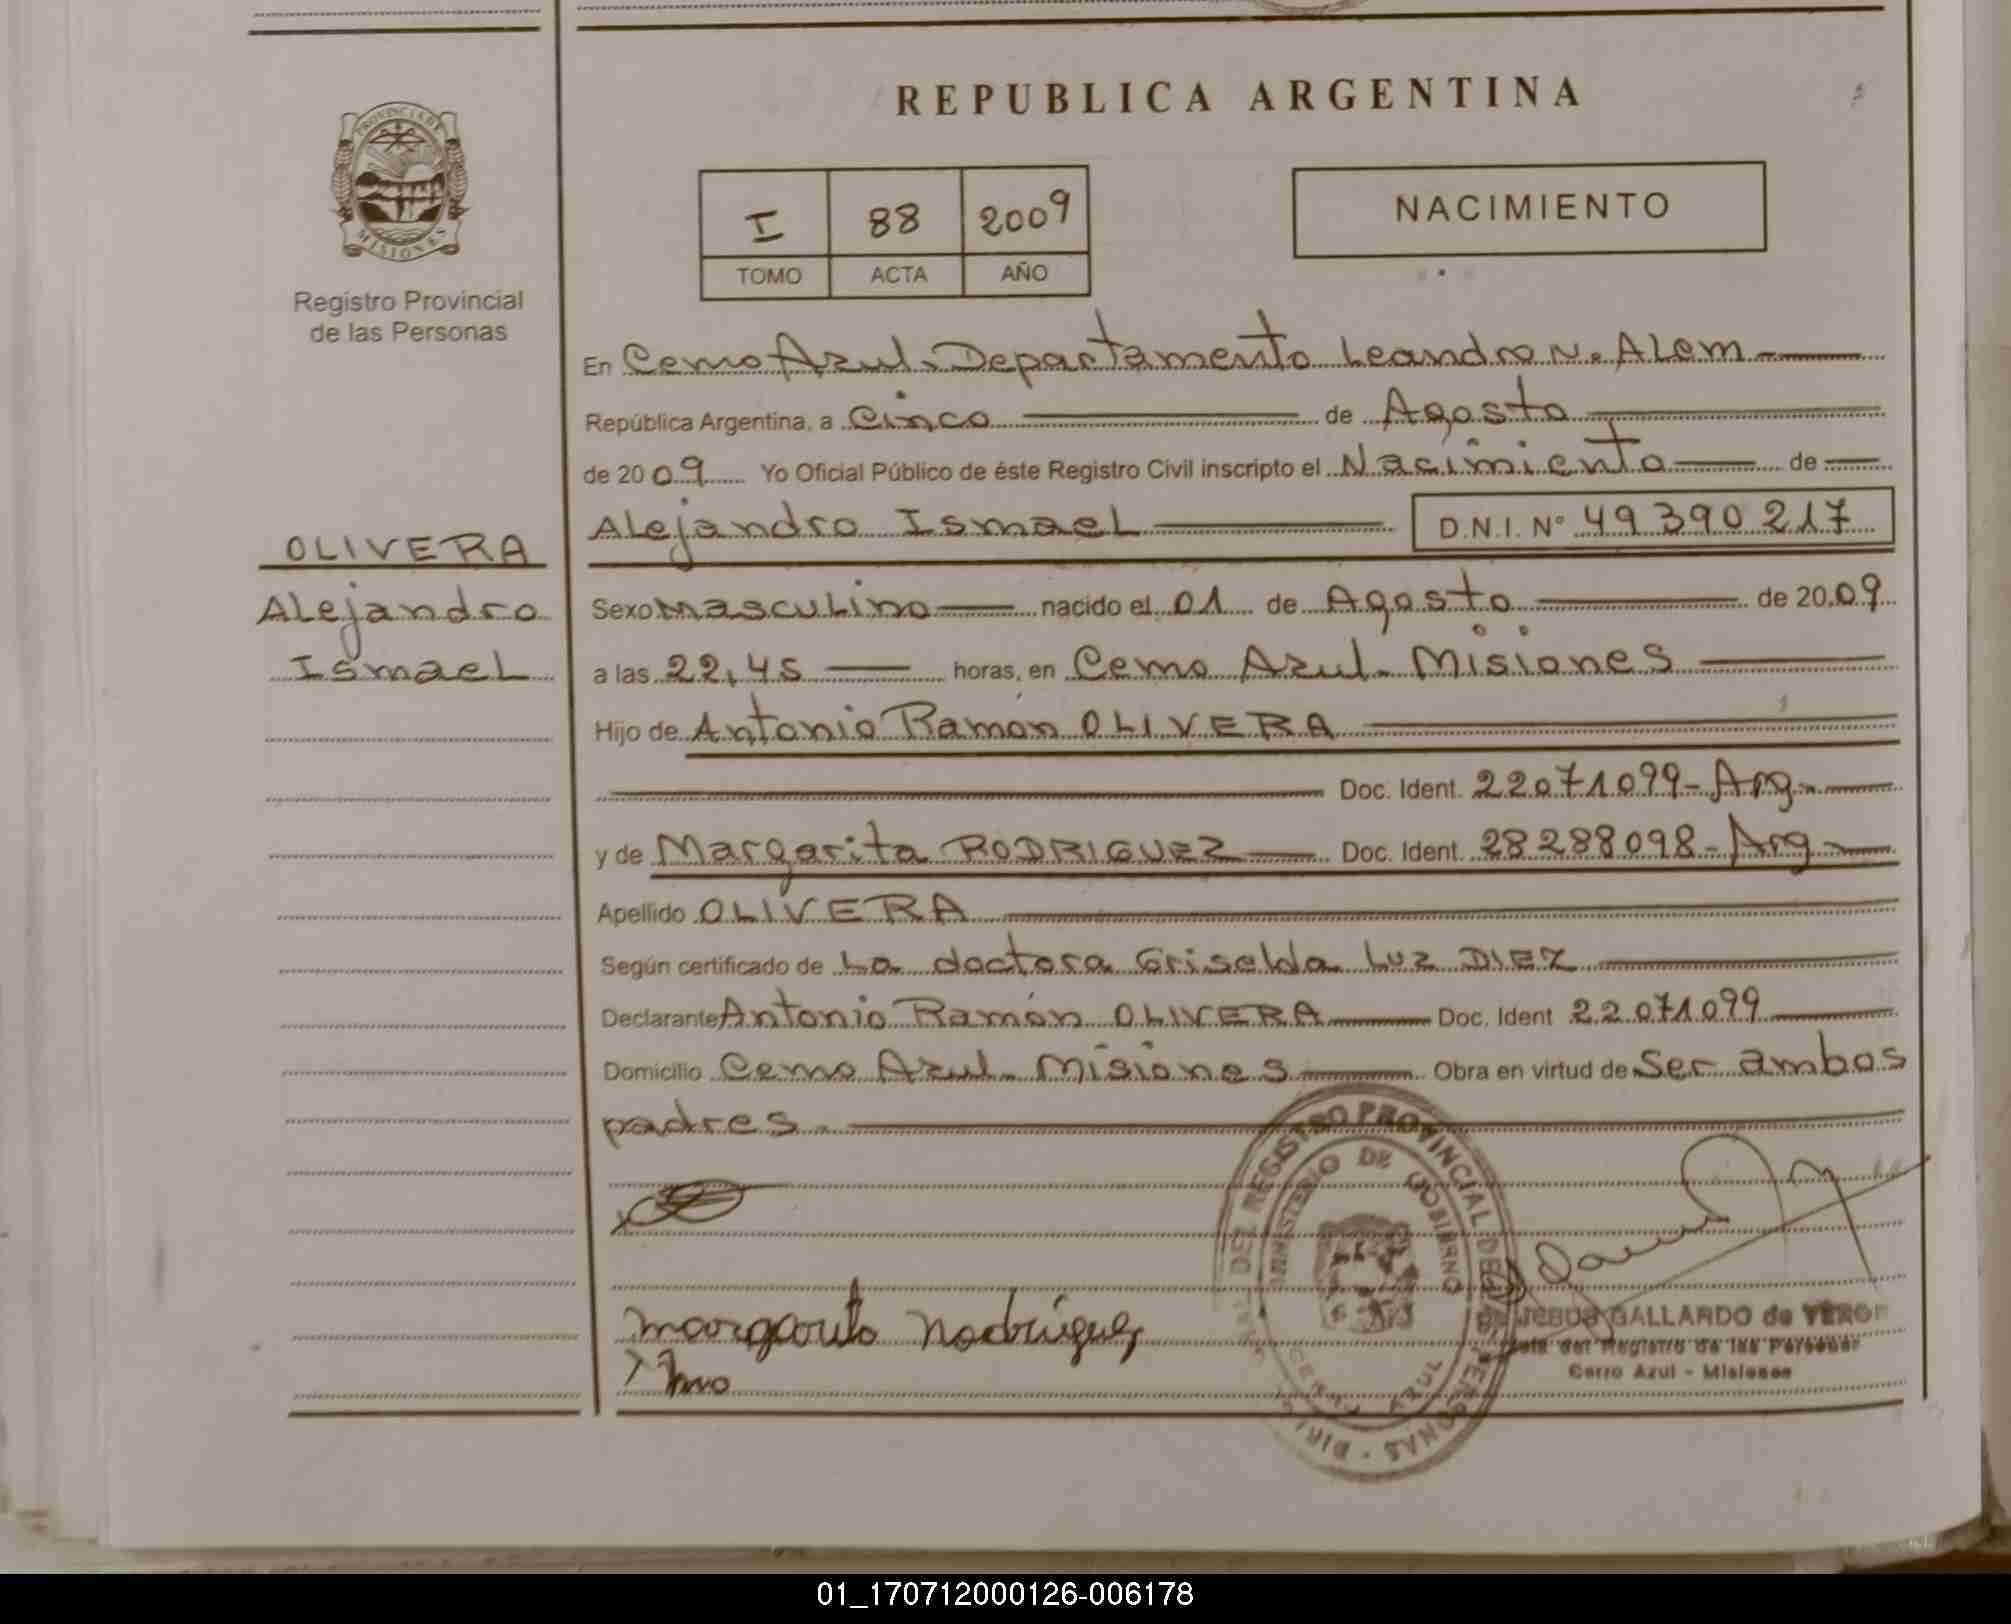 REPUBLICA ARGENTINA
PROVINCIA DE
MISIONES
Registro Provincial
de las Personas
I 88 2009
TOMO ACTA AÑO
NACIMIENTO
En Cerro Azul. Departamento Leandro N. Alem
República Argentina, a Cinco de Agosto
de 2009 Yo Oficial Público de éste Registro Civil inscripto el Nacimiento de
Alejandro Ismael D.N.I. Nº 49 390 217
OLIVERA
Alejandro
Ismael
Sexo Masculino nacido el 01 de Agosto de 2009
a las 22,45 horas, en Cerro Azul. Misiones
Hijo de Antonio Ramón OLIVERA
Doc. Ident. 22071099-Arg-
y de Margarita RODRIGUEZ Doc. Ident. 28288098-Arg-
Apellido OLIVERA
Según certificado de La doctora Griselda Luz DIEZ
Declarante Antonio Ramón OLIVERA Doc. Ident 22071099
Domicilio Cerro Azul. Misiones Obra en virtud de Ser ambos
padres.
DEL REGISTRO PROVINCIAL DE LAS PERSONAS
MINISTERIO DE GOBIERNO
CERRO AZUL
margarita Rodriguez
JESUS GALLARDO de
del Registro de las Personas
Cerro Azul - Misiones
01_170712000126-006178